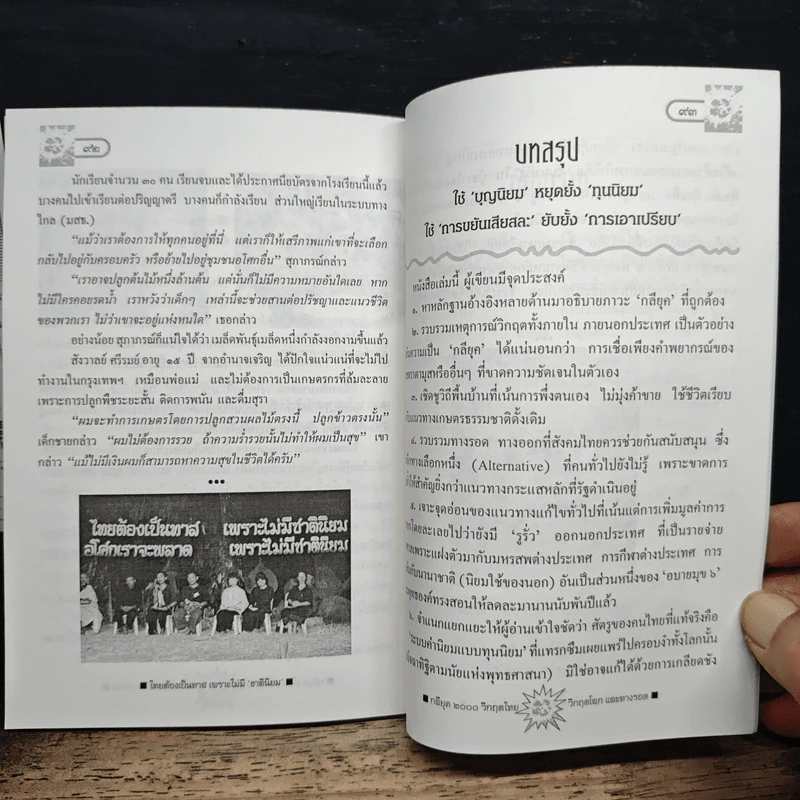 ๙๒
นักเรียนจำนวน ๓๐ คน เรียนจบและได้ประกาศนียบัตรจากโรงเรียนนี้แล้ว
บางคนไปเข้าเรียนต่อปริญญาตรี บางคนก็กำลังเรียน ส่วนใหญ่เรียนในระบบทาง
ไกล (มสธ.)
“แม้ว่าเราต้องการให้ทุกคนอยู่ที่นี่ แต่เราก็ให้เสรีภาพแก่เขาที่จะเลือก
กลับไปอยู่กับครอบครัว หรือย้ายไปอยู่ชุมชนอโศกอื่น” สุภาภรณ์กล่าว
“เราอาจปลูกต้นไม้หนึ่งล้านต้น แต่นั่นก็ไม่มีความหมายอันใดเลย หาก
ไม่มีใครคอยรดน้ำ เราหวังว่าเด็กๆ เหล่านี้จะช่วยสานต่อปรัชญาและแนวชีวิต
ของพวกเรา ไม่ว่าเขาจะอยู่แห่งหนใด” เธอกล่าว
อย่างน้อย สุภาภรณ์ก็แน่ใจได้ว่า เมล็ดพันธุ์เมล็ดหนึ่งกำลังงอกงามขึ้นแล้ว
สังวาลย์ ศรีรมย์ อายุ ๑๕ ปี จากอำนาจเจริญ ได้ปักใจแน่วแน่ที่จะไม่ไป
ทำงานในกรุงเทพฯ เหมือนพ่อแม่ และไม่ต้องการเป็นเกษตรกรที่ล้มละลาย
เพราะการปลูกพืชระยะสั้น ติดการพนัน และดื่มสุรา
“ผมจะทำการเกษตรโดยการปลูกสวนผลไม้ตรงนี้ ปลูกข้าวตรงนั้น”
เด็กชายกล่าว “ผมไม่ต้องการรวย ถ้าความร่ำรวยนั้นไม่ทำให้ผมเป็นสุข” เขา
กล่าว “แม้ไม่มีเงินผมก็สามารถหาความสุขในชีวิตได้ครับ”
•••
ไทยต้องเป็นทาส เพราะไม่มีชาตินิยม
อโศกเราจะพลาด เพราะไม่มีชาตินิยม
■ ไทยต้องเป็นทาส เพราะไม่มี ‘ชาตินิยม’ ■
๙๓
บทสรุป
ใช้ ‘บุญนิยม’ หยุดยั้ง ‘ทุนนิยม’
ใช้ ‘การขยันเสียสละ’ ยับยั้ง ‘การเอาเปรียบ’
หนังสือเล่มนี้ ผู้เขียนมีจุดประสงค์
๑. หาหลักฐานอ้างอิงหลายด้านมาอธิบายภาวะ ‘กลียุค’ ที่ถูกต้อง
๒. รวบรวมเหตุการณ์วิกฤตทั้งภายใน ภายนอกประเทศ เป็นตัวอย่าง
ความเป็น ‘กลียุค’ ได้แน่นอนกว่า การเชื่อเพียงคำพยากรณ์ของ
ตราดามุสหรืออื่นๆ ที่ขาดความชัดเจนในตัวเอง
๓. เชิดชูวิถีพื้นบ้านที่เน้นการพึ่งตนเอง ไม่มุ่งค้าขาย ใช้ชีวิตเรียบ
แนวทางเกษตรธรรมชาติดั้งเดิม
๔. รวบรวมทางรอด ทางออกที่สังคมไทยควรช่วยกันสนับสนุน ซึ่ง
ทางเลือกหนึ่ง (Alternative) ที่คนทั่วไปยังไม่รู้ เพราะขาดการ
ให้สำคัญยิ่งกว่าแนวทางกระแสหลักที่รัฐดำเนินอยู่
๕. เจาะจุดอ่อนของแนวทางแก้ไขทั่วไปที่เน้นแต่การเพิ่มมูลค่าการ
โดยละเลยไปว่ายังมี ‘รูรั่ว’ ออกนอกประเทศ ที่เป็นรายจ่าย
เพราะแฝงตัวมากับมหรสพต่างประเทศ การกีฬาต่างประเทศ การ
กับนานาชาติ (นิยมใช้ของนอก) อันเป็นส่วนหนึ่งของ ‘อบายมุข ๖’
พุทธองค์ทรงสอนให้ลดละมานานนับพันปีแล้ว
๖. จำแนกแยกแยะให้ผู้อ่านเข้าใจชัดว่า ศัตรูของคนไทยที่แท้จริงคือ
‘ระบบค่านิยมแบบทุนนิยม’ ที่แทรกซึมเผยแพร่ไปครอบงำทั้งโลกนั้น
มิจฉาทิฐิตามนัยแห่งพุทธศาสนา) มิใช่อาจแก้ได้ด้วยการเกลียดชัง
■ กลียุค ๒๐๐๐ วิกฤตไทย วิกฤตโลก และทางรอด ■